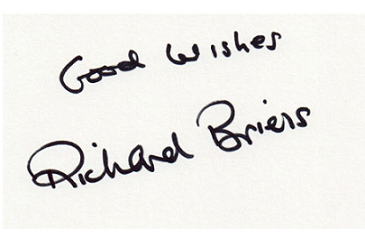 Good Wishes
Richard Briers